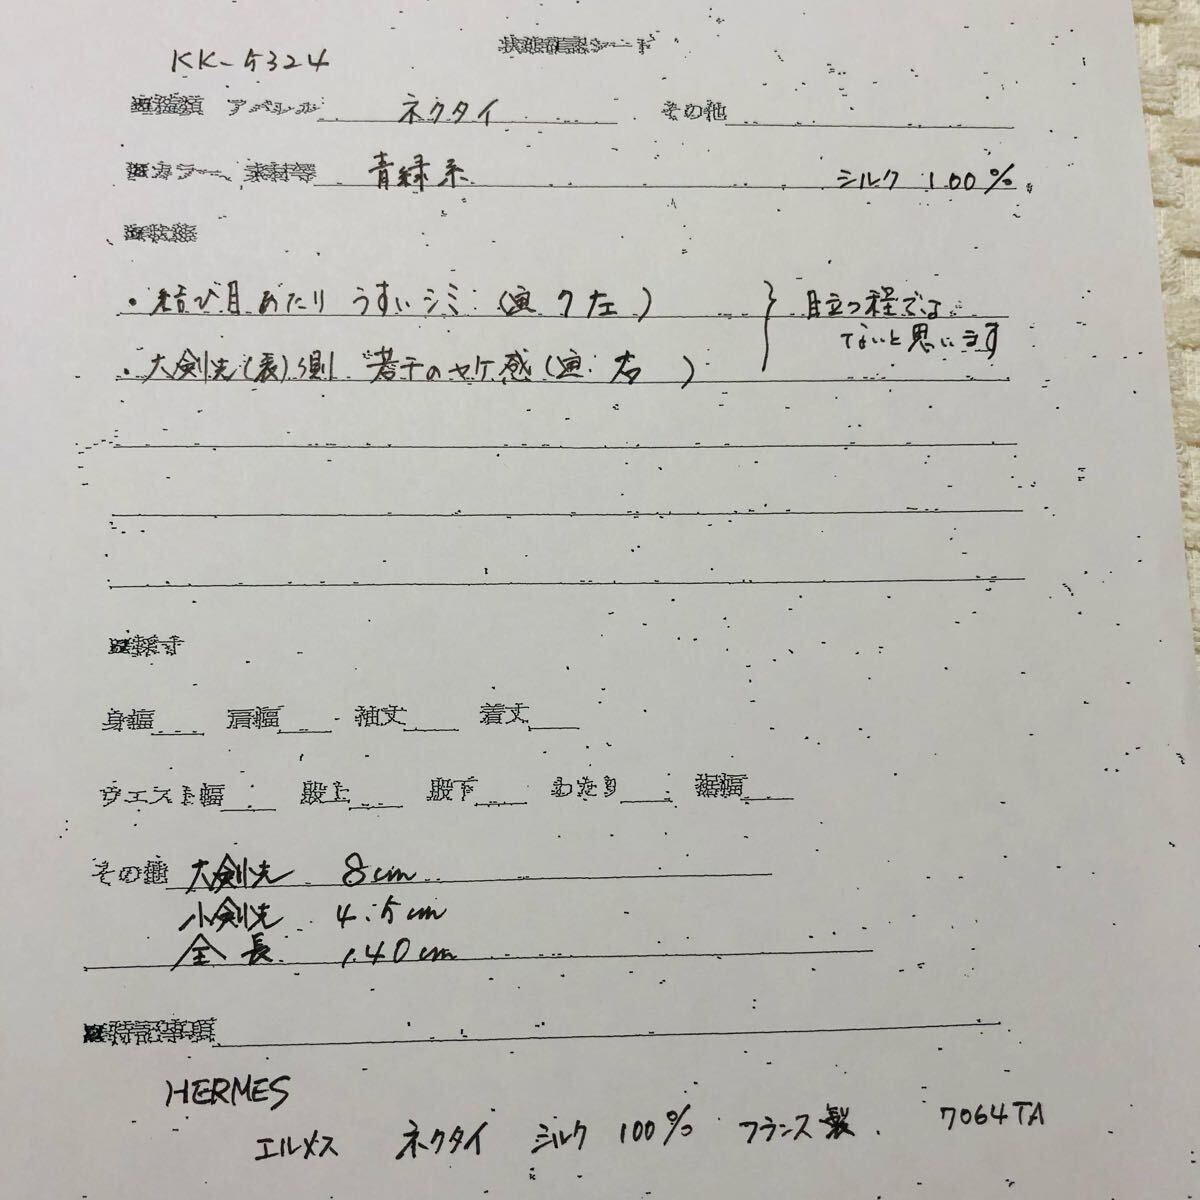 状態確認シート
KK-5324
■種類 アパレル ネクタイ その他
■カラー、素材等 青緑系 シルク 100%
■状態
・結び目あたり うすいシミ (画7左) } 目立つ程では
ないと思います
・大剣先(表)側 若干のヤケ感(画:右)
■採寸
身幅 肩幅 袖丈 着丈
ウエスト幅 股上 股下 わたり 裾幅
その他 大剣先 8cm
小剣先 4.5cm
全長 140cm
■特記事項
HERMES
エルメス ネクタイ シルク 100% フランス製 7064TA